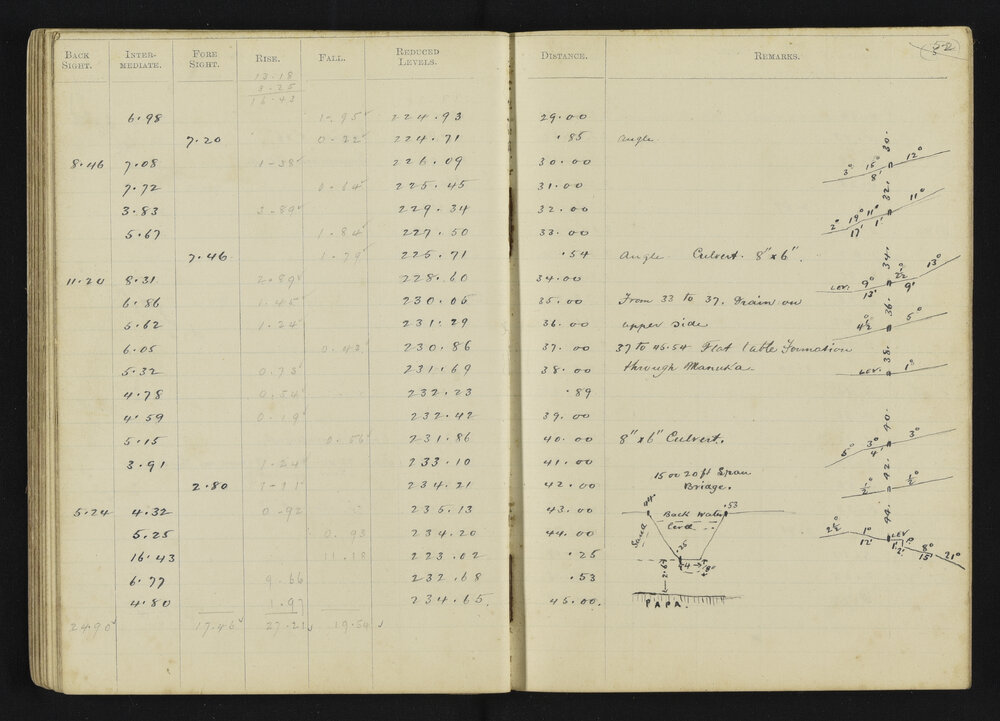 BACK SIGHT. INTER-MEDIATE. FORE SIGHT. RISE. FALL. REDUCED LEVELS. DISTANCE. REMARKS. 52
13.18
3.25
16.43
6.98 1.95 224.93 29.00
7.20 0.22 224.71 .85 Angle
8.46 7.08 1.38 226.09 30.00
7.72 0.64 225.45 31.00
3.83 3.89 229.34 32.00
5.67 1.84 227.50 33.00
7.46 1.79 225.71 .54 Angle Culvert. 8" x 6".
11.20 8.31 2.89 228.60 34.00
6.86 1.45 230.05 35.00 From 33 to 37. Drain on
5.62 1.24 231.29 36.00 upper side
6.05 0.43 230.86 37.00 37 to 45.54 Flat Table Formation
5.32 0.73 231.69 38.00 through Manuka.
4.78 0.54 232.23 .89
4.59 0.19 232.42 39.00
5.15 0.56 231.86 40.00 8" x 6" Culvert.
3.91 1.24 233.10 41.00
2.80 1.11 234.21 42.00
5.24 4.32 0.92 235.13 43.00
5.25 0.93 234.20 44.00
16.43 11.18 223.02 .25
6.77 9.66 232.68 .53
4.80 1.97 234.65. 45.00.
24.90 17.46 27.21 19.54
15 oo 20 ft Span
Bridge.
44. .53
Back Water
Level
Sand
.25
2.67 4 8°
PAPA.
30.
3° 15° 12°
8'
32.
2° 19° 11° 11°
17' 1'
34.
LEV. 9° 2½° 13°
13' 9'
36.
4½° 5°
38.
LEV. 1°
40.
5° 3° 3°
4'
42.
½° ½°
44.
2½° 1° LEV.
12' 12' 8° 21°
15'